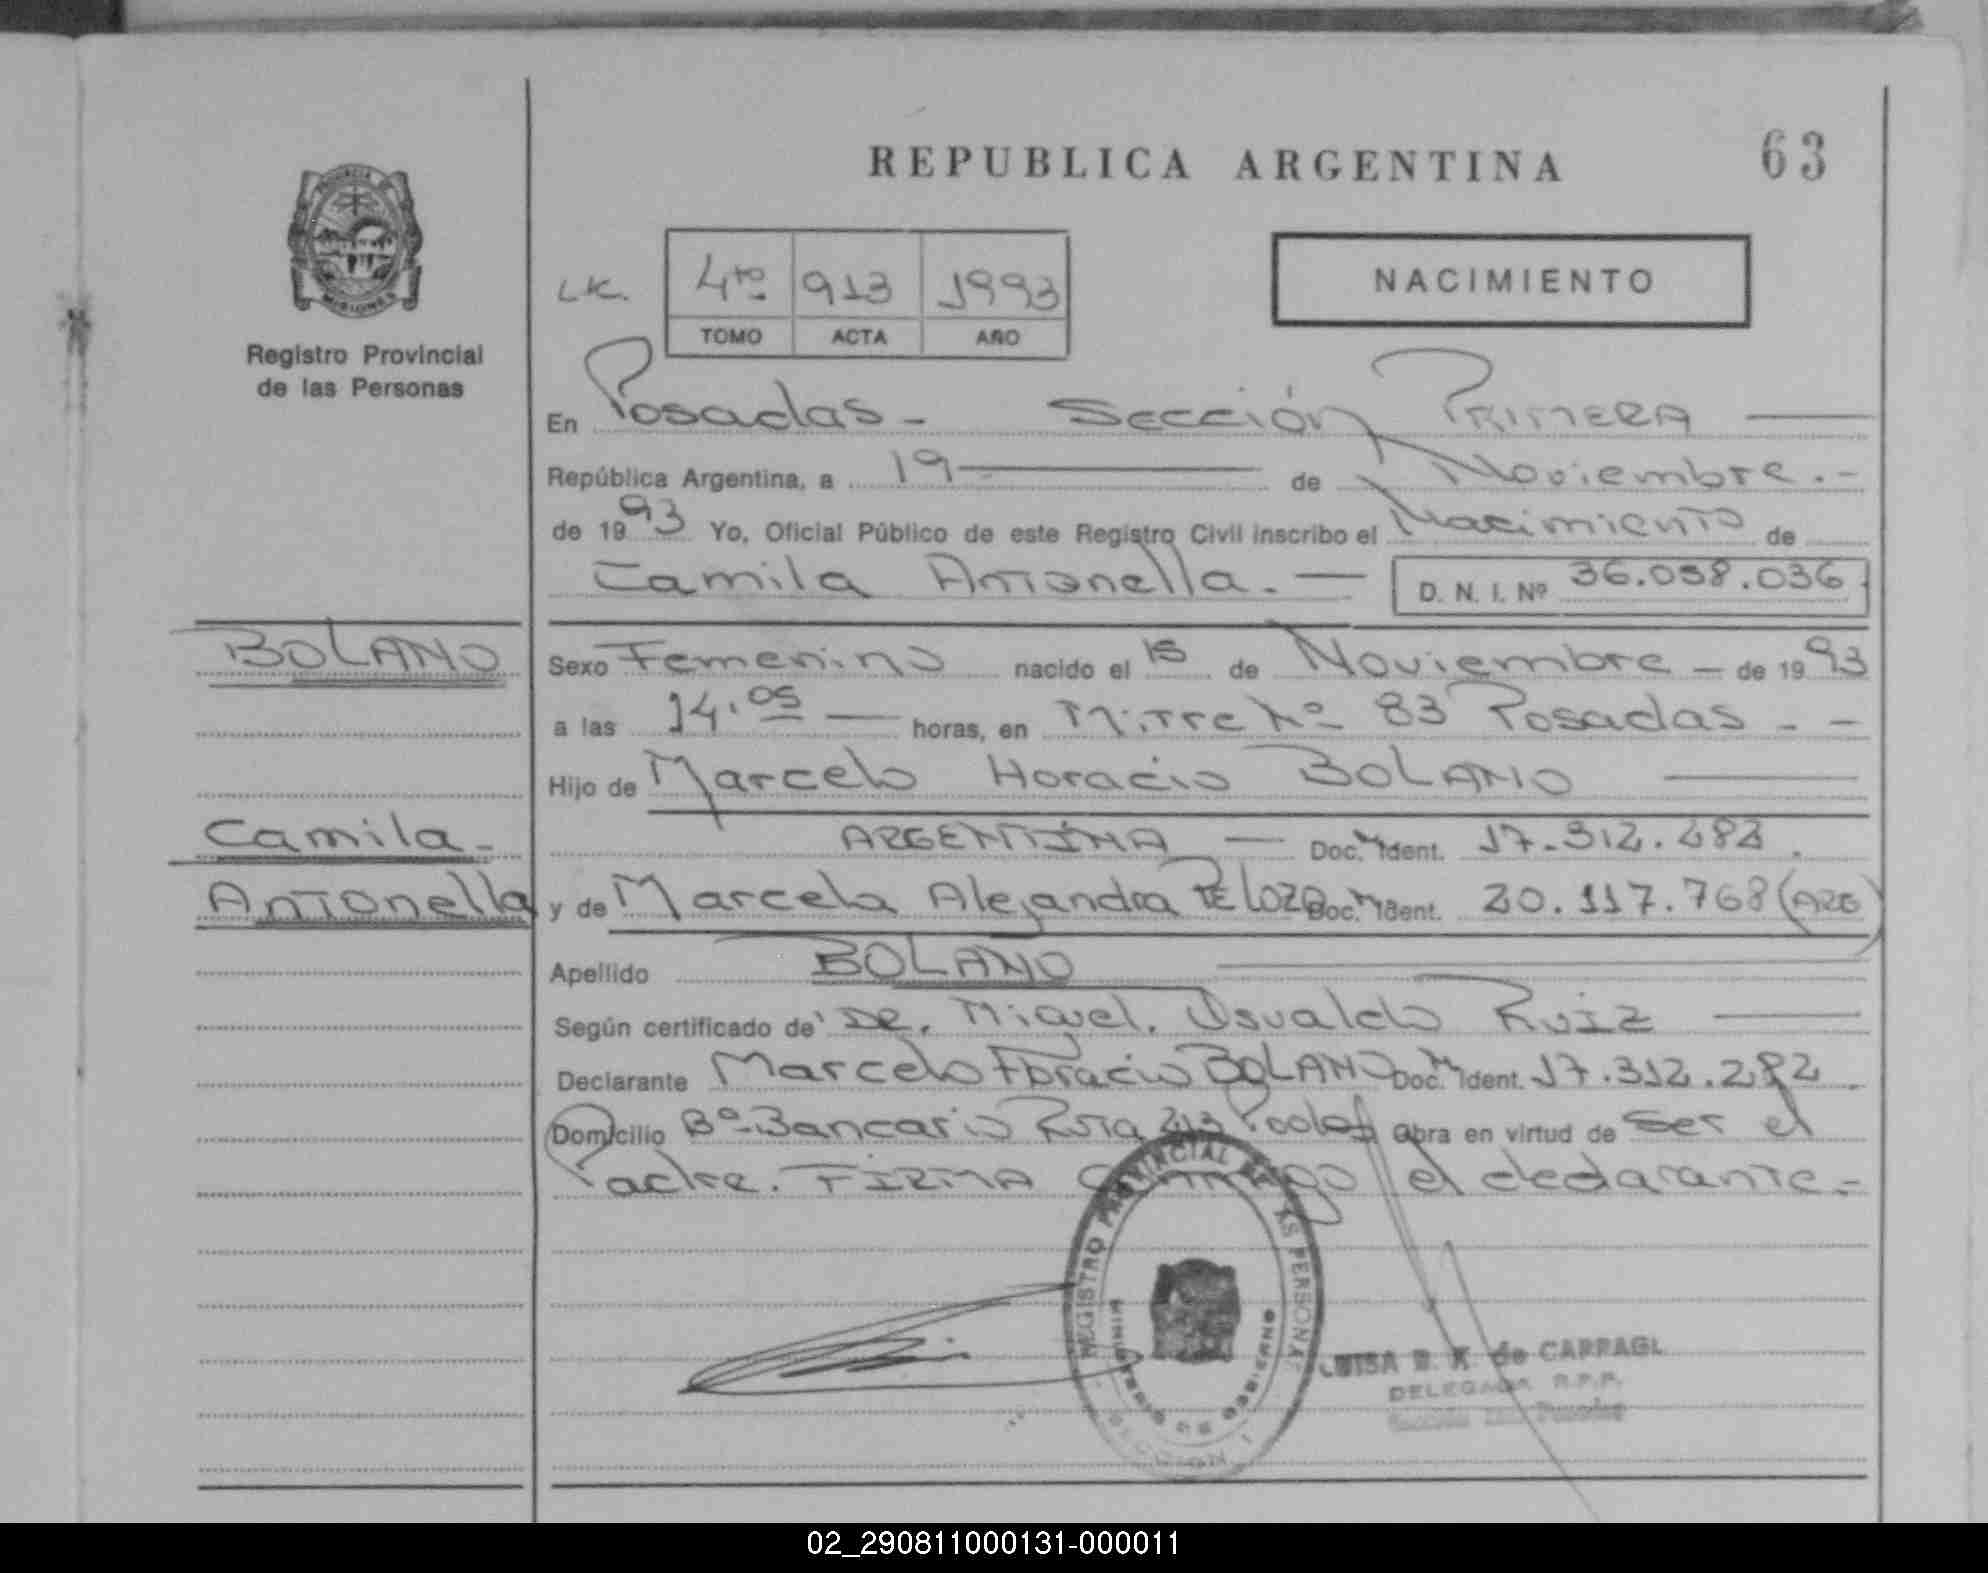 REPUBLICA ARGENTINA
63
PROVINCIA DE
MISIONES
Registro Provincial
de las Personas
LK.
4to 913 1993
TOMO ACTA AÑO
NACIMIENTO
En Posadas - Sección PRIMERA
República Argentina, a 19 de Noviembre.-
de 1993 Yo, Oficial Público de este Registro Civil inscribo el Nacimiento de
Camila Antonella. — D. N. I. Nº 36.058.036
BOLANO
Sexo Femenino nacido el 15 de Noviembre - de 1993
a las 14.05 — horas, en Mitre Nº 83 Posadas - -
Hijo de Marcelo Horacio BOLANO
Camila -
ARGENTINA — Doc. Ident. 17.312.282.
Antonella
y de Marcela Alejandra PELOZO Doc. Ident. 20.117.768 (ARG)
Apellido BOLANO
Según certificado de DR. Miguel. Osvaldo Ruiz
Declarante Marcelo Horacio BOLANO Doc. Ident. 17.312.282.
Domicilio Bº Bancario Ruta 213 Obra en virtud de ser el
Padre. FIRMA CONMIGO el declarante.-
REGISTRO PROVINCIAL DE LAS PERSONAS
MINISTERIO DE GOBIERNO
LUISA B. K. de CARRAGL
DELEGADA R.P.P.
02_290811000131-000011